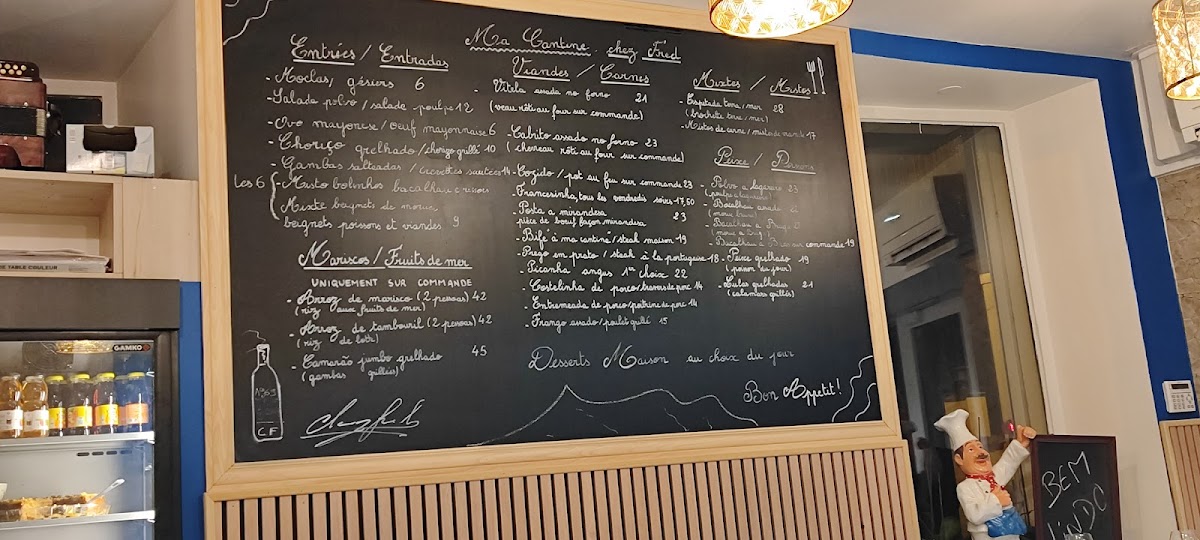 Ma Cantine chez Fred
Entrées / Entradas
- Moelas, gésiers 6
- Salada polvo / salade poulpe 12
- Ovo mayonese / oeuf mayonnaise 6
- Chouriço grelhado / chorizo grillé 10
- Gambas salteadas / crevettes sautées 14
Les 6
- Misto bolinhos bacalhau
Mixte beignets de morue
beignets poissons et viandes 9
Mariscos / Fruits de mer
UNIQUEMENT SUR COMMANDE
- Arroz de marisco (2 pessoas) 42
(riz aux fruits de mer)
- Arroz de tamboril (2 pessoas) 42
(riz de lotte)
- Camarão jumbo grelhado 45
(gambas grillés)
Viandes / Carnes
- Vitela assada no forno 21
(veau rôti au four sur commande)
- Cabrito assado no forno 23
(chevreau rôti au four sur commande)
- Cozido / pot au feu sur commande 23
- Francesinha, tous les vendredis soirs 17,50
- Posta a mirandesa 23
pièce de boeuf façon mirandesa
- Bife "à ma cantina" / steak maison 19
- Prego em prato / steak à la portugaise 18
- Picanha angus 1er choix 22
- Costelinha de porco / travers de porc 14
- Entremeada de porco / poitrine de porc 14
- Frango assado / poulet grillé 15
Mixtes / Mistos
- Espetada terra / mer 28
(brochette terre / mer)
- Mistos de carne / mixte de viande 17
Peixe / Poissons
- Polvo a lagareiro 23
- Bacalhau assado
- Bacalhau a Braga
- Bacalhau a Bras sur commande 19
- Peixe grelhado 19
(poisson du jour)
- Lulas grelhadas 21
(calamars grillés)
Desserts Maison au choix du jour
Bon Appetit!
N°63
C.F
GAMKO
BEM
VINDO